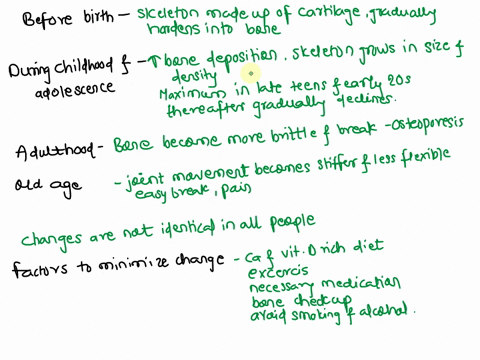 Before birth - skeleton made up of cartilage, gradually
hardens into bone
During childhood & - ↑ bone deposition, skeleton grows in size &
adolescence density
Maximum in late teens & early 20s
thereafter gradually declines.
Adulthood - Bone become more brittle & break - osteoporesis
old age - joint movement becomes stiffer & less flexible
easy break, pain
changes are not identical in all people
factors to minimize change - Ca & vit. D rich diet
excercis
necessary medication
bone checkup
avoid smoking & alcohol.